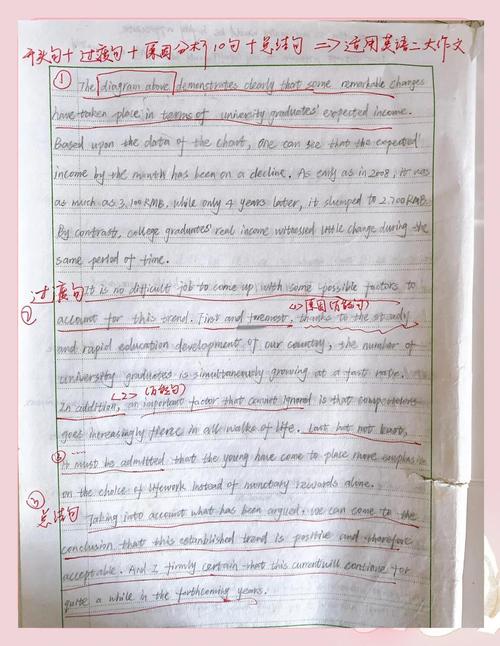 开头句+过渡句+原因分析10句+总结句 => 适用英语二大作文
① The diagram above demonstrates clearly that some remarkable changes
have taken place in terms of university graduates' expected income.
Based upon the data of the chart, one can see that the expected
income by the month has been on a decline. As early as in 2008, it was
as much as 3,100RMB, while only 4 years later, it slumped to 2,700RMB.
By contrast, college graduates' real income witnessed little change during the
same period of time.
过渡句 It is no difficult job to come up with some possible factors to
<1>原因(万能句)
② account for this trend. First and foremost, thanks to the steady
and rapid education development of our country, the number of
university graduates is simultaneously growing at a fast rate.
<2>(万能句)
In addition, an important factor that cannot ignored is that
goes increasingly fierce in all walks of life. Last but not least,
③ ....
it must be admitted that the young have come to place more emphasis
on the choice of lifework instead of monetary rewards alone.
③
总结句 Taking into account what has been argued, we can come to the
conclusion that this established trend is positive and therefore
acceptable. And I firmly certain that this current will continue for
quite a while in the forthcoming years.